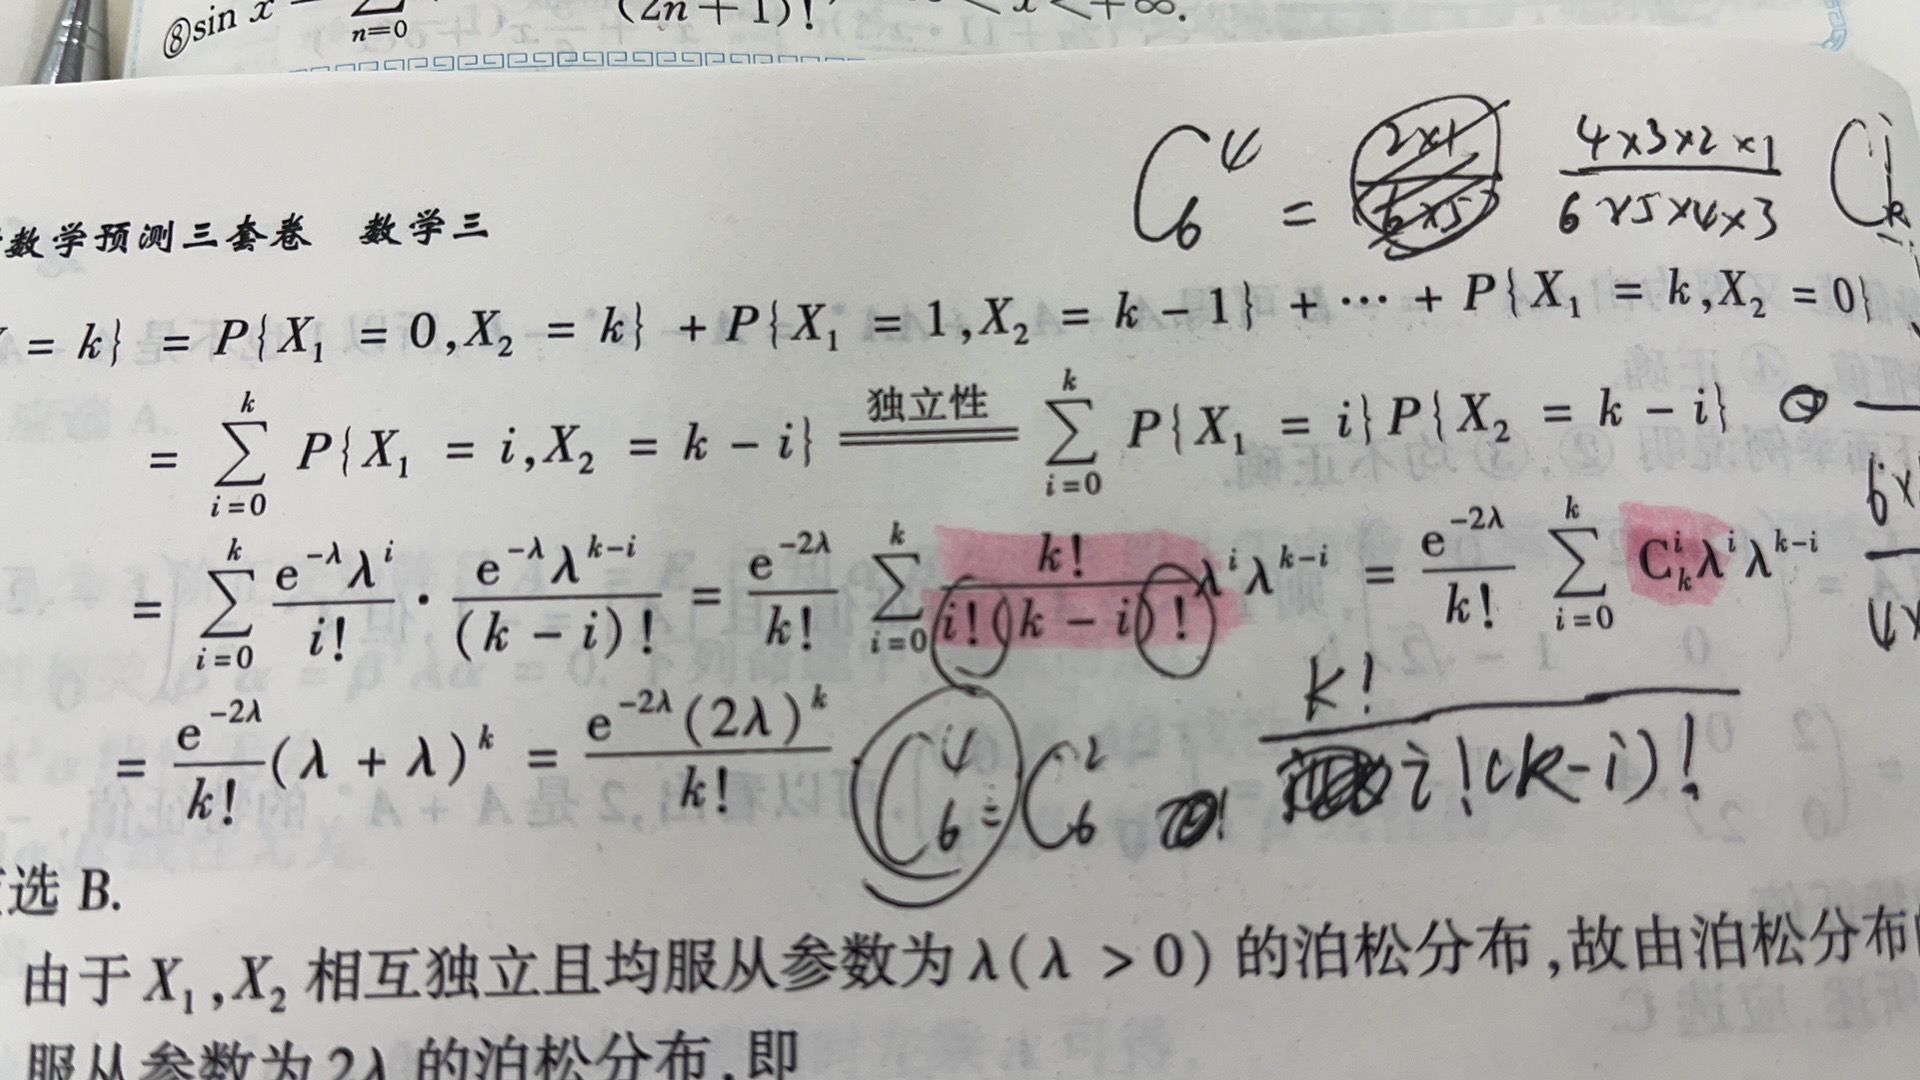 ⑧sin x = ∑ n=0 (2n+1)! < x < +∞.
C₆⁴ = 4×3×2×1 / 6×5×4×3 Cₖⁱ
数学预测三套卷 数学三
= k} = P{X₁ = 0, X₂ = k} + P{X₁ = 1, X₂ = k − 1} + ⋯ + P{X₁ = k, X₂ = 0}
= ∑_{i=0}^{k} P{X₁ = i, X₂ = k − i} 独立性 ∑_{i=0}^{k} P{X₁ = i}P{X₂ = k − i}
= ∑_{i=0}^{k} e^{−λ}λ^{i}/i! · e^{−λ}λ^{k−i}/(k − i)! = e^{−2λ}/k! ∑_{i=0}^{k} k!/i!(k − i)! λ^{i}λ^{k−i} = e^{−2λ}/k! ∑_{i=0}^{k} Cₖⁱ λ^{i}λ^{k−i}
= e^{−2λ}/k! (λ + λ)^{k} = e^{−2λ}(2λ)^{k}/k!
C₆⁴ = C₆² k!/i!(k−i)!
选 B.
由于 X₁, X₂ 相互独立且均服从参数为 λ(λ > 0) 的泊松分布,故由泊松分布
服从参数为 2λ 的泊松分布,即